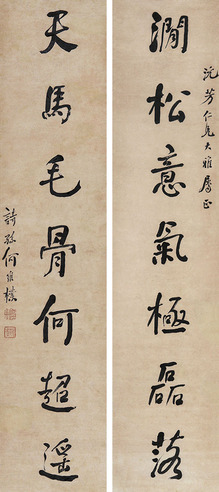 沅芳仁兄大雅属正
澗松意氣極磊落
天馬毛骨何超遥
詩孫何維樸